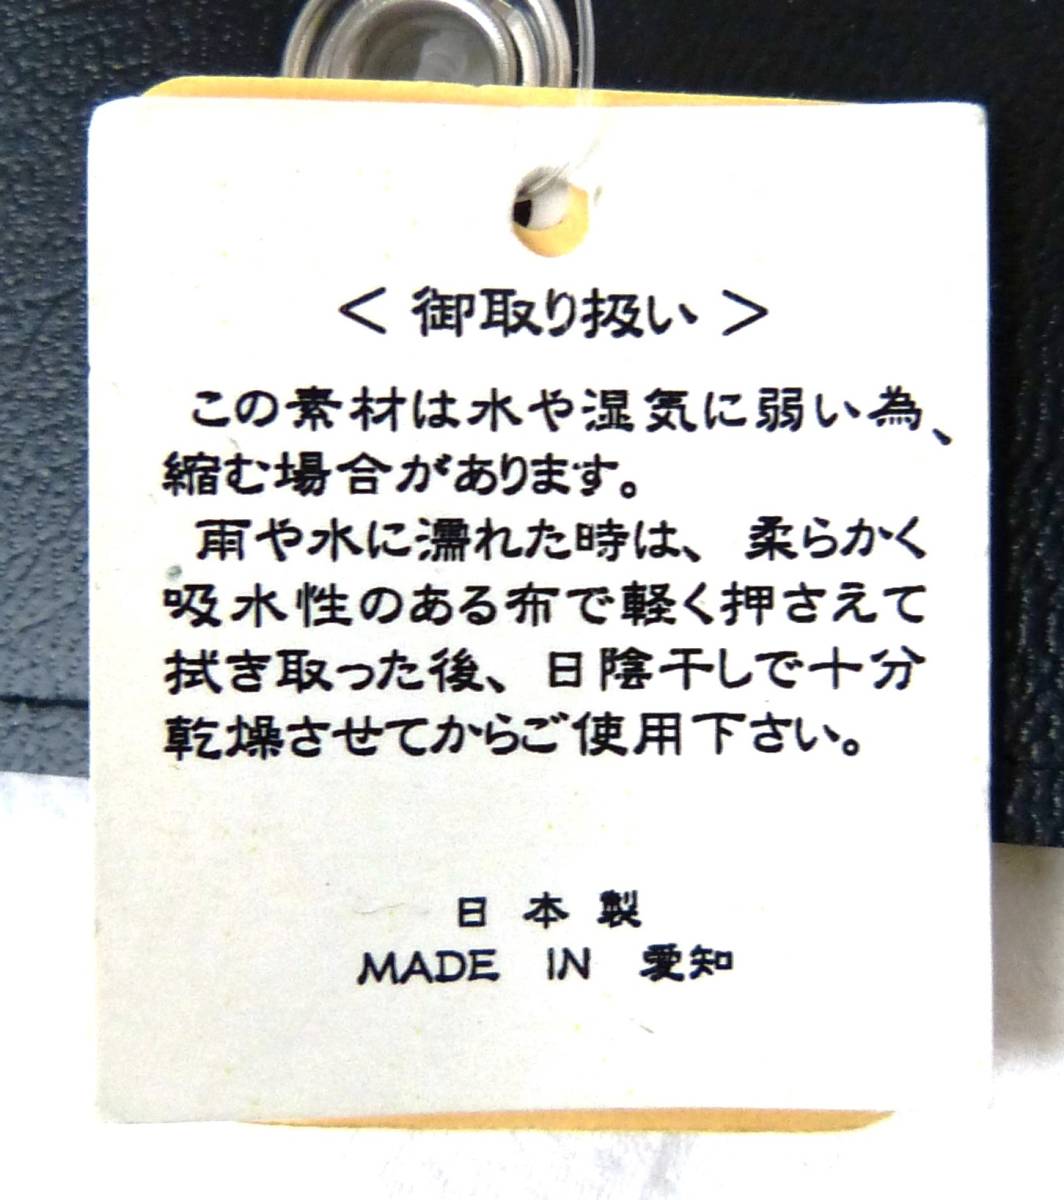 ＜御取り扱い＞
この素材は水や湿気に弱い為、
縮む場合があります。
雨や水に濡れた時は、柔らかく
吸水性のある布で軽く押さえて
拭き取った後、日陰干しで十分
乾燥させてからご使用下さい。
日本製
MADE IN 愛知